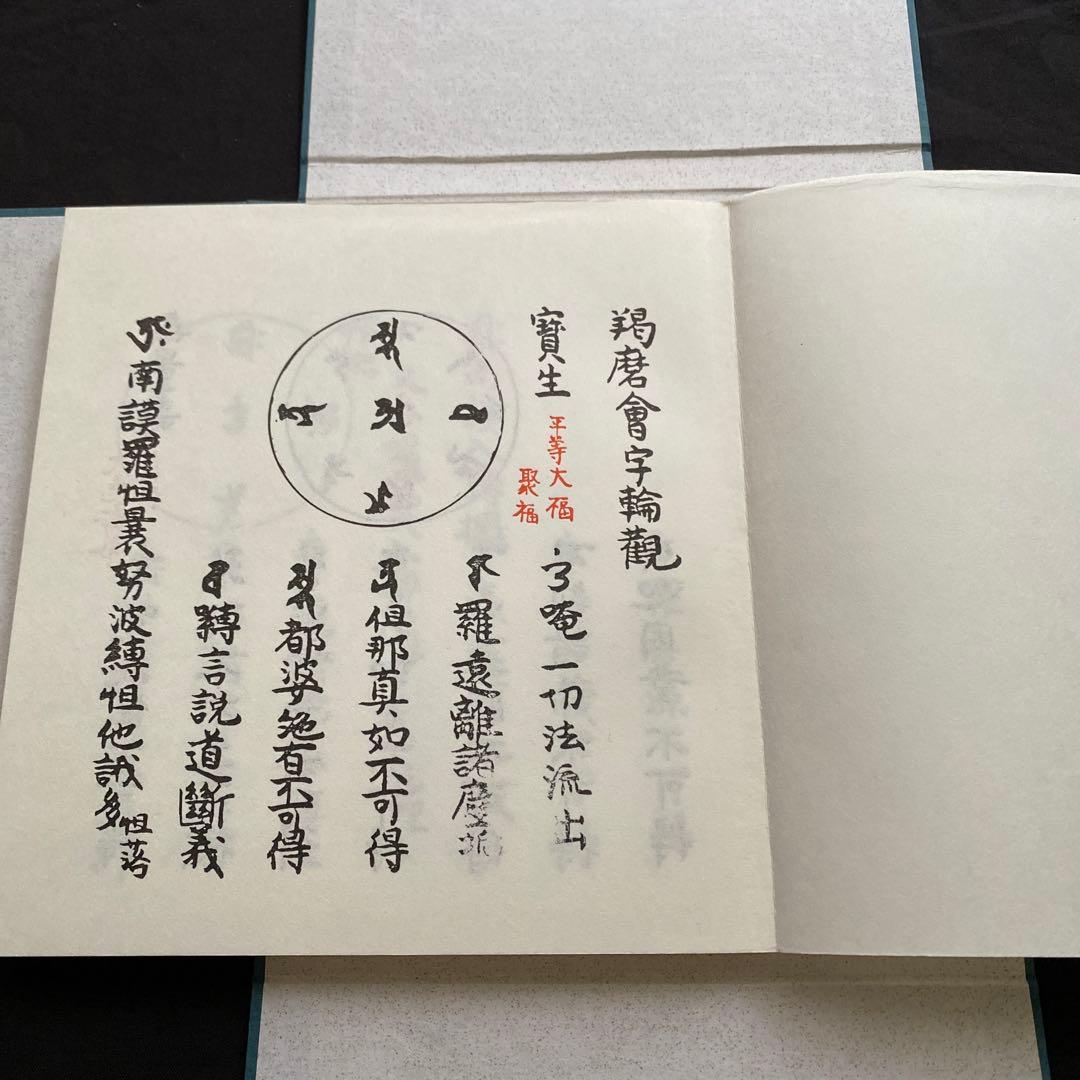 羯磨會字輪觀
寶生
平等大福
聚福
唵一切法流出
羅遠離諸塵垢
怛那真如不可得
都婆施有不可得
韈言說道斷義
南謨羅怛曩努波縛怛他誐多
怛落